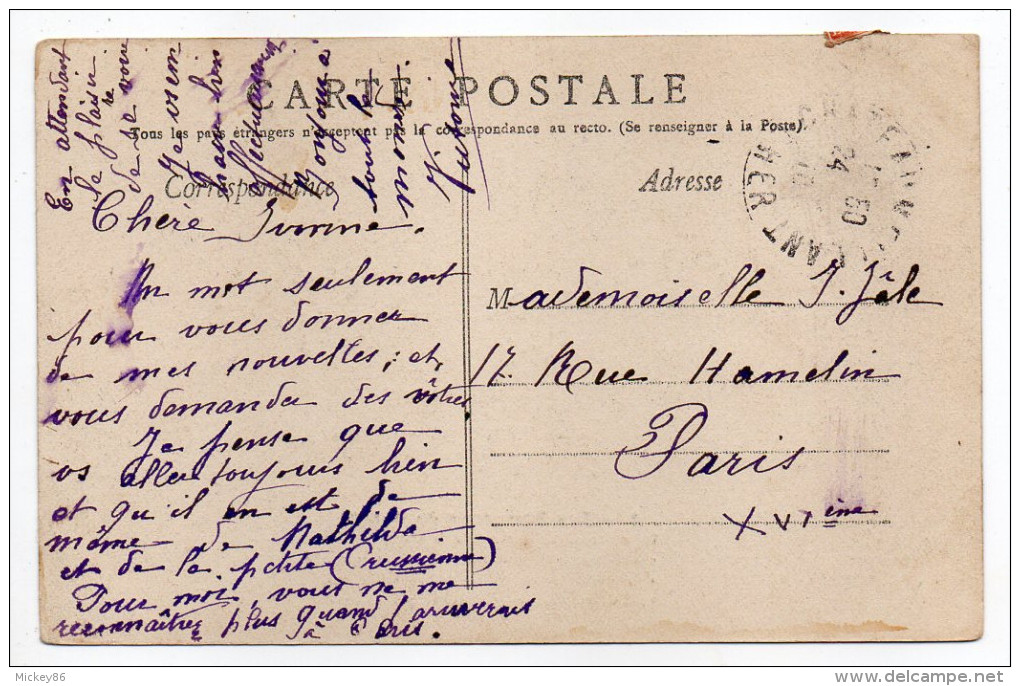 CARTE POSTALE
Tous les pays étrangers n'acceptent pas la correspondance au recto. (Se renseigner à la Poste).
Correspondance
Adresse
Chère Ivonne.
Un mot seulement
pour vous donner
de mes nouvelles, et,
vous demander des vôtres.
Je pense que
vs allez toujours bien
et qu'il en est de
même de Mathilde
et de la petite (russienne)
Pour moi, vous ne me
reconnaîtrez plus quand j'arriverais
à Paris.
En attendant
le plaisir
de se voir
recevez
bien
Affectueux
Bonjour à
tout le
monde.
Mademoiselle J. Jâle
17 Rue Hamelin
Paris
XVIème
24
Mickey86
www.delcampe.net